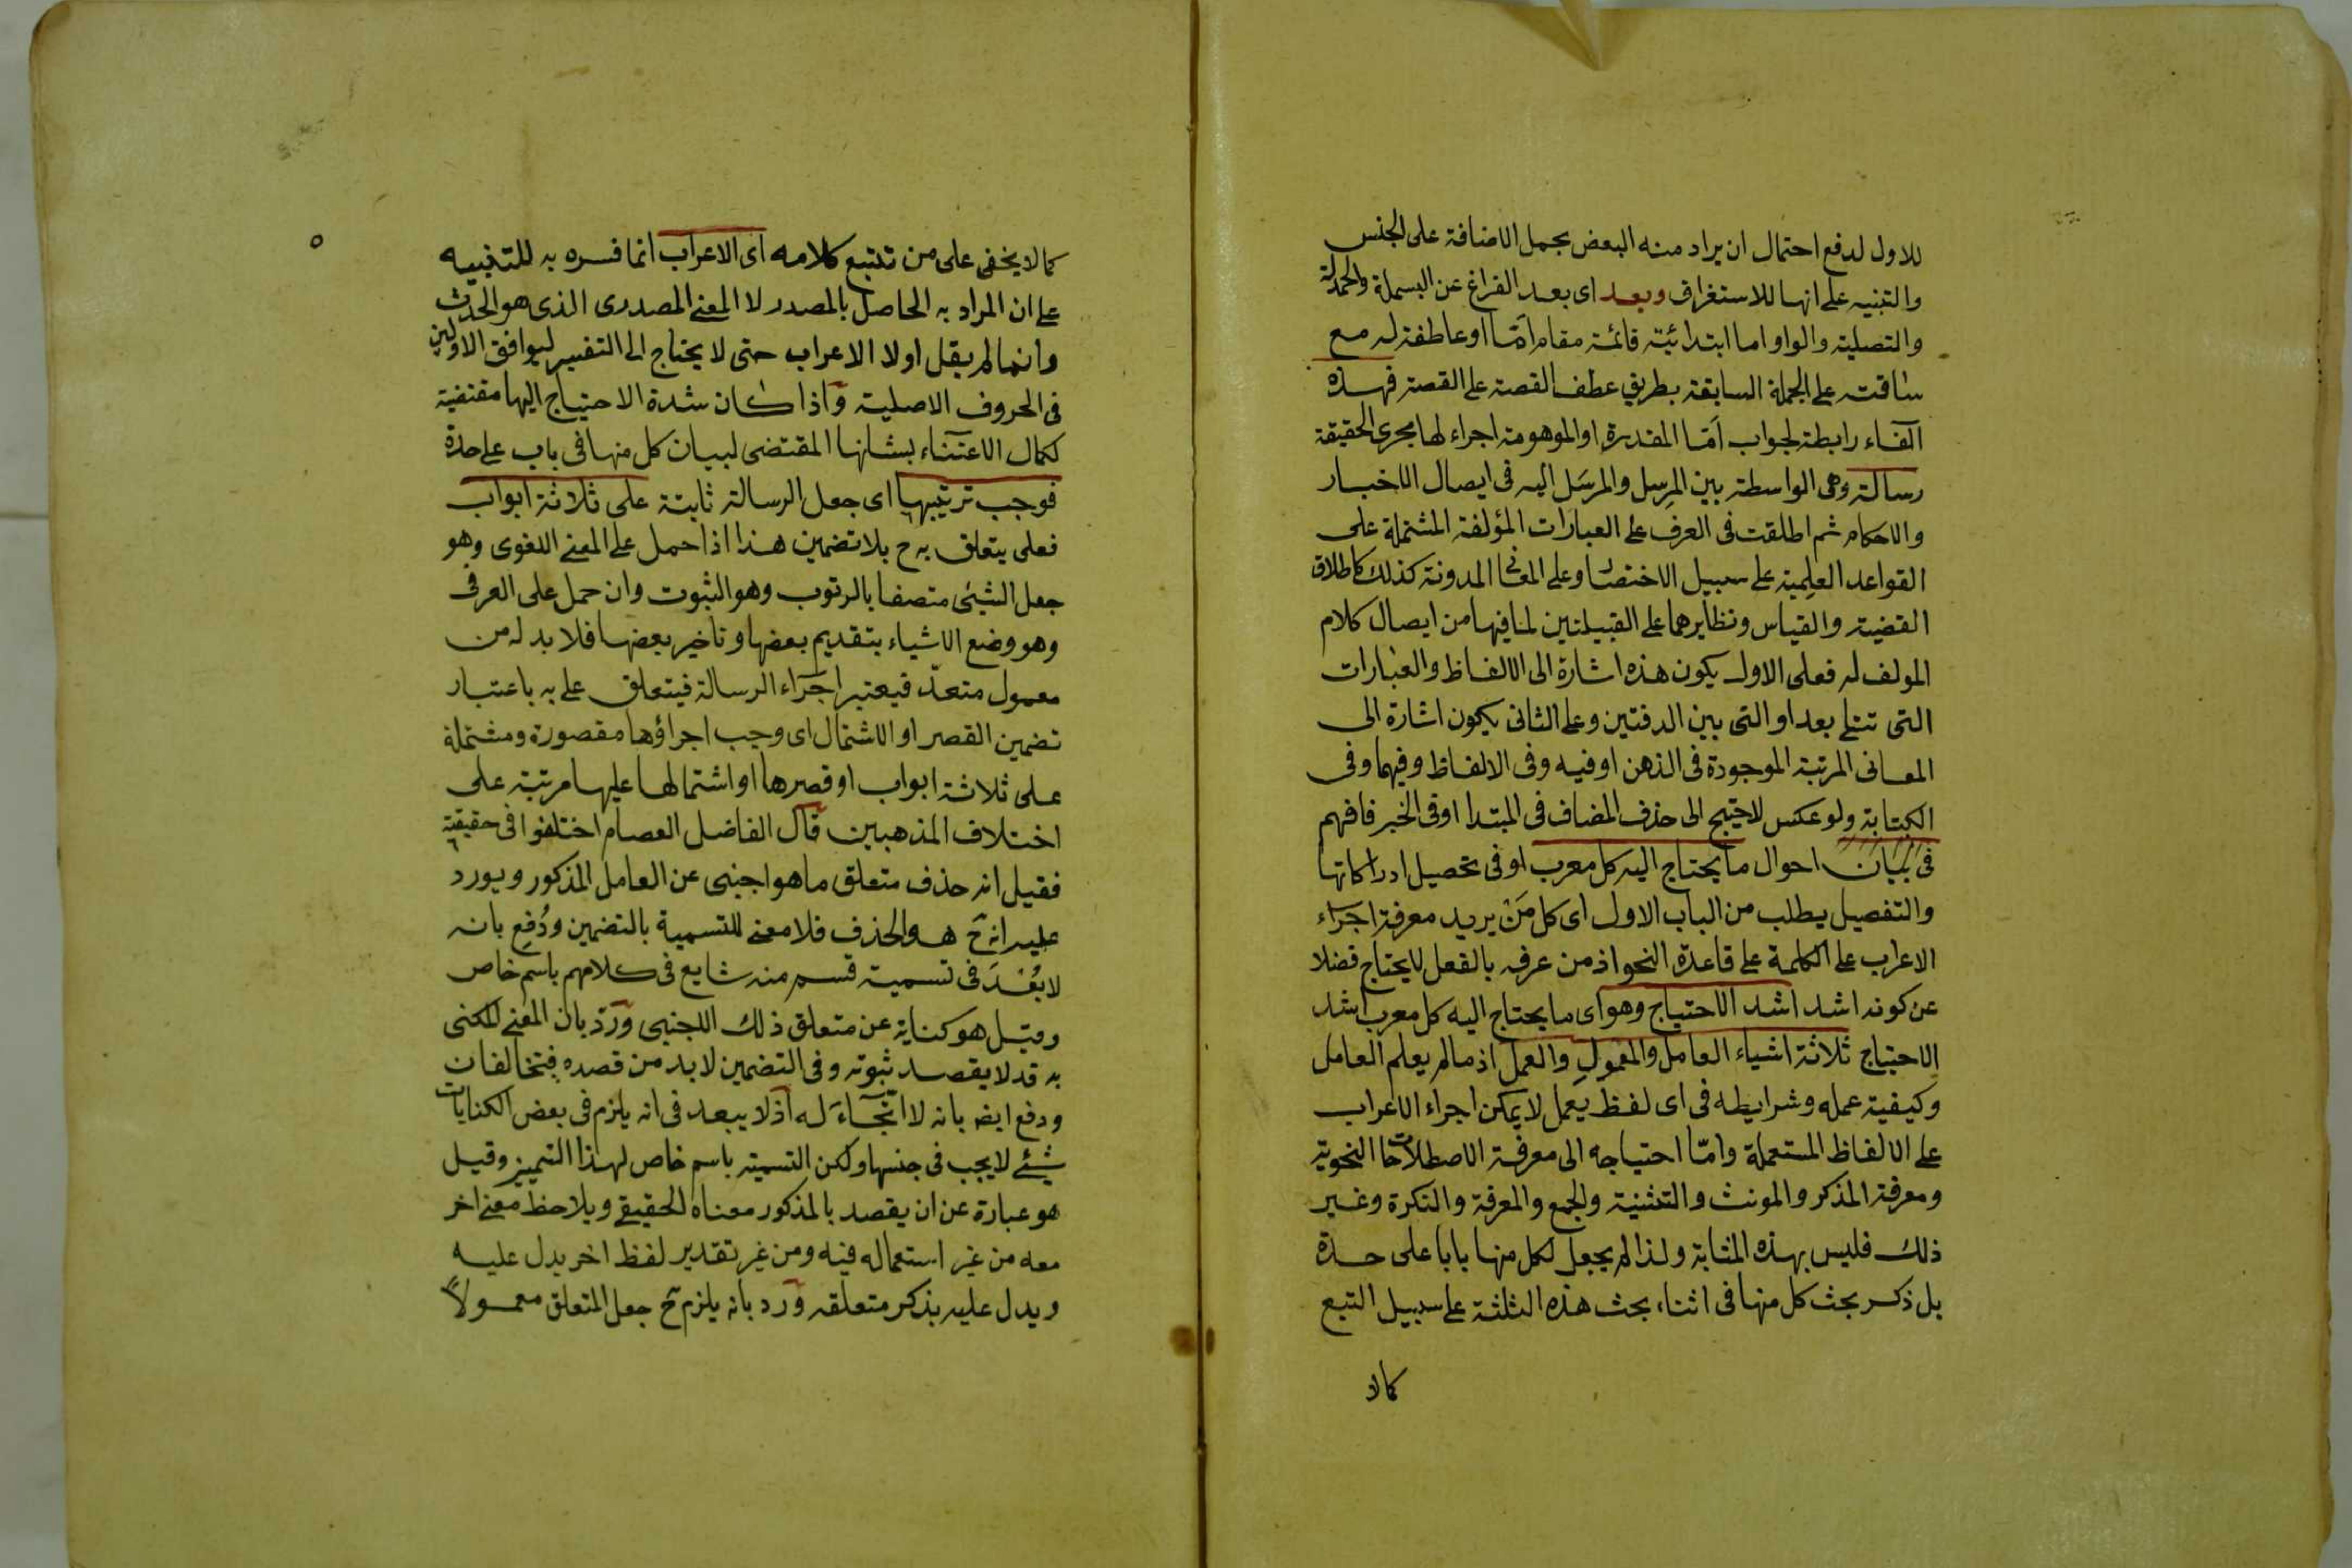 للاول لدفع احتمال ان يراد منه البعض بحمل الاضافة على الجنس
والتنبيه على انها للاستغراق وبعد اى بعد الفراغ عن البسملة والحمدلة
والتصلية والواو اما ابتدائية قائمة مقام امّا او عاطفة له مع
ساقته على الجملة السابقة بطريق عطف القصة على القصة فهذه
الفاء رابطة لجواب امّا المقدرة او الموهومة اجراء لها مجرى الحقيقة
رسالة وهى الواسطة بين المرسِل والمرسَل اليه فى ايصال الاخبار
والاحكام ثم اطلقت فى العرف على العبارات المؤلفة المشتملة على
القواعد العلمية على سبيل الاختصار وعلى المعانى المدونة كذلك كاطلاق
القضية والقياس ونظايرهما على القبيلتين لما فيها من ايصال كلام
المولف له فعلى الاول يكون هذه اشارة الى الالفاظ والعبارات
التى تتلى بعد او التى بين الدفتين وعلى الثانى يكون اشارة الى
المعانى المرتبة الموجودة فى الذهن او فيه وفى الالفاظ وفيهما وفى
الكتابة ولو عكس لاحتيج الى حذف المضاف فى المبتدا او فى الخبر فافهم
فى بيان احوال ما يحتاج اليه كل معرب او فى تحصيل ادراكاتها
والتفصيل يطلب من الباب الاول اى كل مَنْ يريد معرفة اجراء
الاعراب على الكلمة على قاعدة النحو اذ من عرفه بالفعل لا يحتاج فضلا
عن كونه اشد اشد الاحتياج وهو اى ما يحتاج اليه كل معرب اشد
الاحتياج ثلاثة اشياء العامل والمعمول والعمل اذ ما لم يعلم العامل
وكيفية عمله وشرايطه فى اى لفظ يعمل لا يمكن اجراء الاعراب
على الالفاظ المستعملة وامّا احتياجه الى معرفة الاصطلاحات النحوية
ومعرفة المذكر والمونث والتثنية والجمع والمعرفة والنكرة وغير
ذلك فليس بهذه المثابة ولذا لم يجعل لكل منها بابا على حدة
بل ذكر بحث كل منها فى اثناء بحث هذه الثلثة على سبيل التبع
كما لا
٥
كما لا يخفى على من تتبع كلامه اى الاعراب انما فسره به للتنبيه
على ان المراد به الحاصل بالمصدر لا المعنى المصدرى الذى هو الحدث
وانما لم يقل اولا الاعراب حتى لا يحتاج الى التفسير ليوافق الاولين
فى الحروف الاصلية واذا كان شدة الاحتياج اليها مقتضية
لكمال الاعتناء بشانها المقتضى لبيان كل منها فى باب على حدة
فوجب ترتيبها اى جعل الرسالة ثابتة على ثلاثة ابواب
فعلى يتعلق به ح بلا تضمين هذا اذا حمل على المعنى اللغوى وهو
جعل الشيئ متصفا بالرتوب وهو الثبوت وان حمل على العرفى
وهو وضع الاشياء بتقديم بعضها وتاخير بعضها فلا بد له من
معمول متعدّد فيعتبر اجزاء الرسالة فيتعلق على به باعتبار
تضمين القصر او الاشتمال اى وجب اجزاؤها مقصورة ومشتملة
على ثلاثة ابواب او قصرها او اشتمالها عليها مرتبة على
اختلاف المذهبين قال الفاضل العصام اختلفوا فى حقيقته
فقيل انه حذف متعلق ما هو اجنبى عن العامل المذكور ويورد
عليه انه ح هو الحذف فلا معنى للتسمية بالتضمين ودُفع بانه
لا بُعْدَ فى تسمية قسم منه شايع فى كلامهم باسم خاص
وقيل هو كناية عن متعلق ذلك الاجنبى وردّ بان المعنى المكنى
به قد لا يقصد ثبوته وفى التضمين لا بد من قصده فيتخالفان
ودفع ايضا بانه لا اتّجاء له اذ لا يبعد فى انه يلزم فى بعض الكنايات
شيئ لا يجب فى جنسها ولكن التسمية باسم خاص لهذا التمييز وقيل
هو عبارة عن ان يقصد بالمذكور معناه الحقيقى ويلاحظ معنى اخر
معه من غير استعماله فيه ومن غير تقدير لفظ اخر يدل عليه
ويدل عليه بذكر متعلقه ورد بانه يلزم ح جعل المتعلق معمولاً